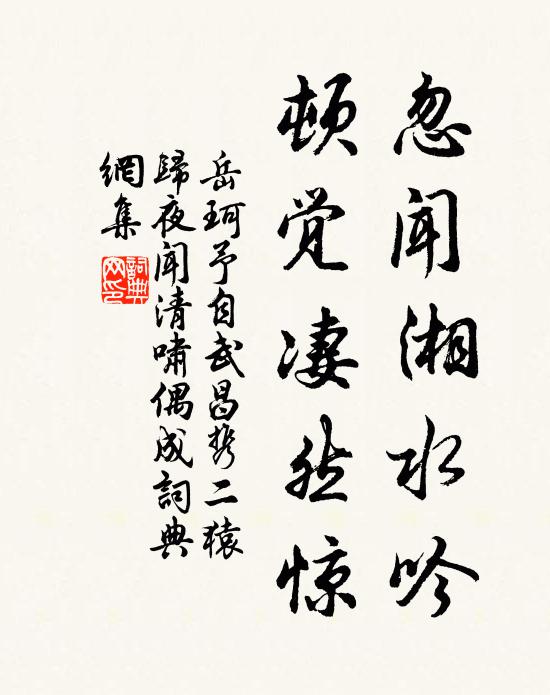 忽闻湘水吟
顿觉凄然惊
岳珂予自武昌携二猿
歸夜闻清啸偶成詞典
網集
詞典網印